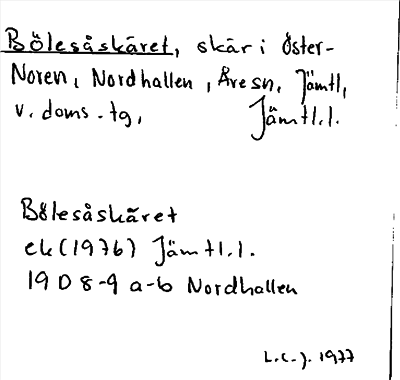 Bölesåskäret, skär i Öster-
Noren, Nordhallen, Åre sn, Jämtl,
v. doms. tg, Jämtl.l.
Bölesåskäret
ek (1976) Jämtl.l.
19 D 8-9 a-b Nordhallen
L.C.J. 1977